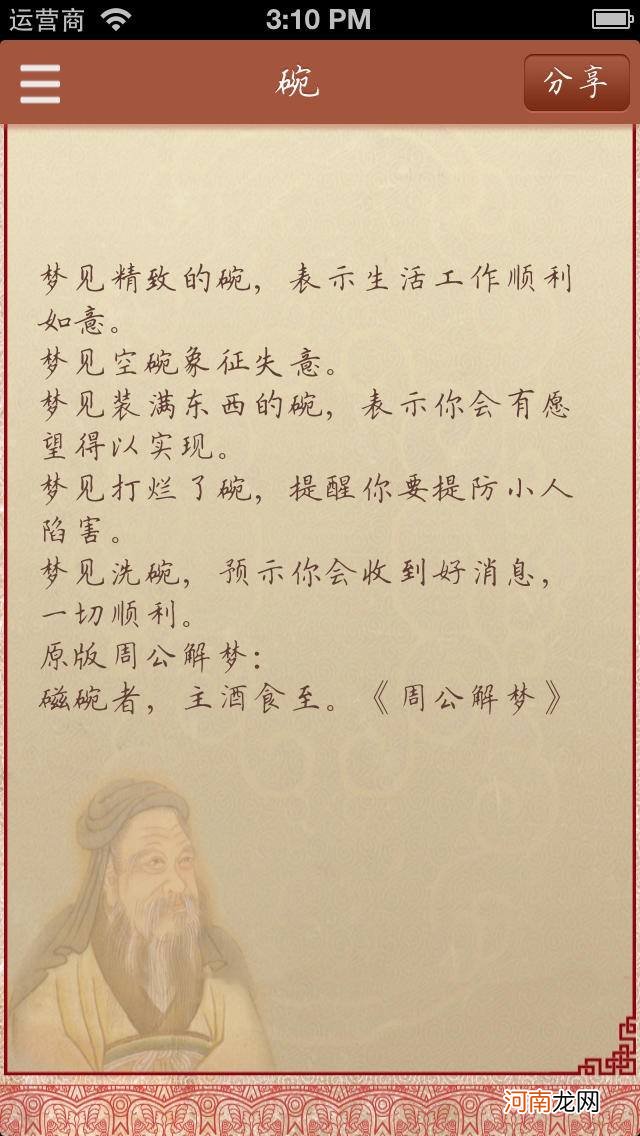 运营商 3:10 PM
碗
分享
梦见精致的碗，表示生活工作顺利
如意。
梦见空碗象征失意。
梦见装满东西的碗，表示你会有愿
望得以实现。
梦见打烂了碗，提醒你要提防小人
陷害。
梦见洗碗，预示你会收到好消息，
一切顺利。
原版周公解梦：
磁碗者，主酒食至。《周公解梦》
河南龙网